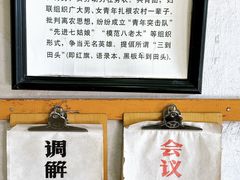 联组织广大男、女青年扎根农村一辈子,
批判离农思想,纷纷成立“青年突击队”
“先进七姑娘”“模范八老太”等组织
形式,争当无名英雄,提倡所谓“三到
田头”(即红旗、语录本、黑板车到田头)。
调解
会议